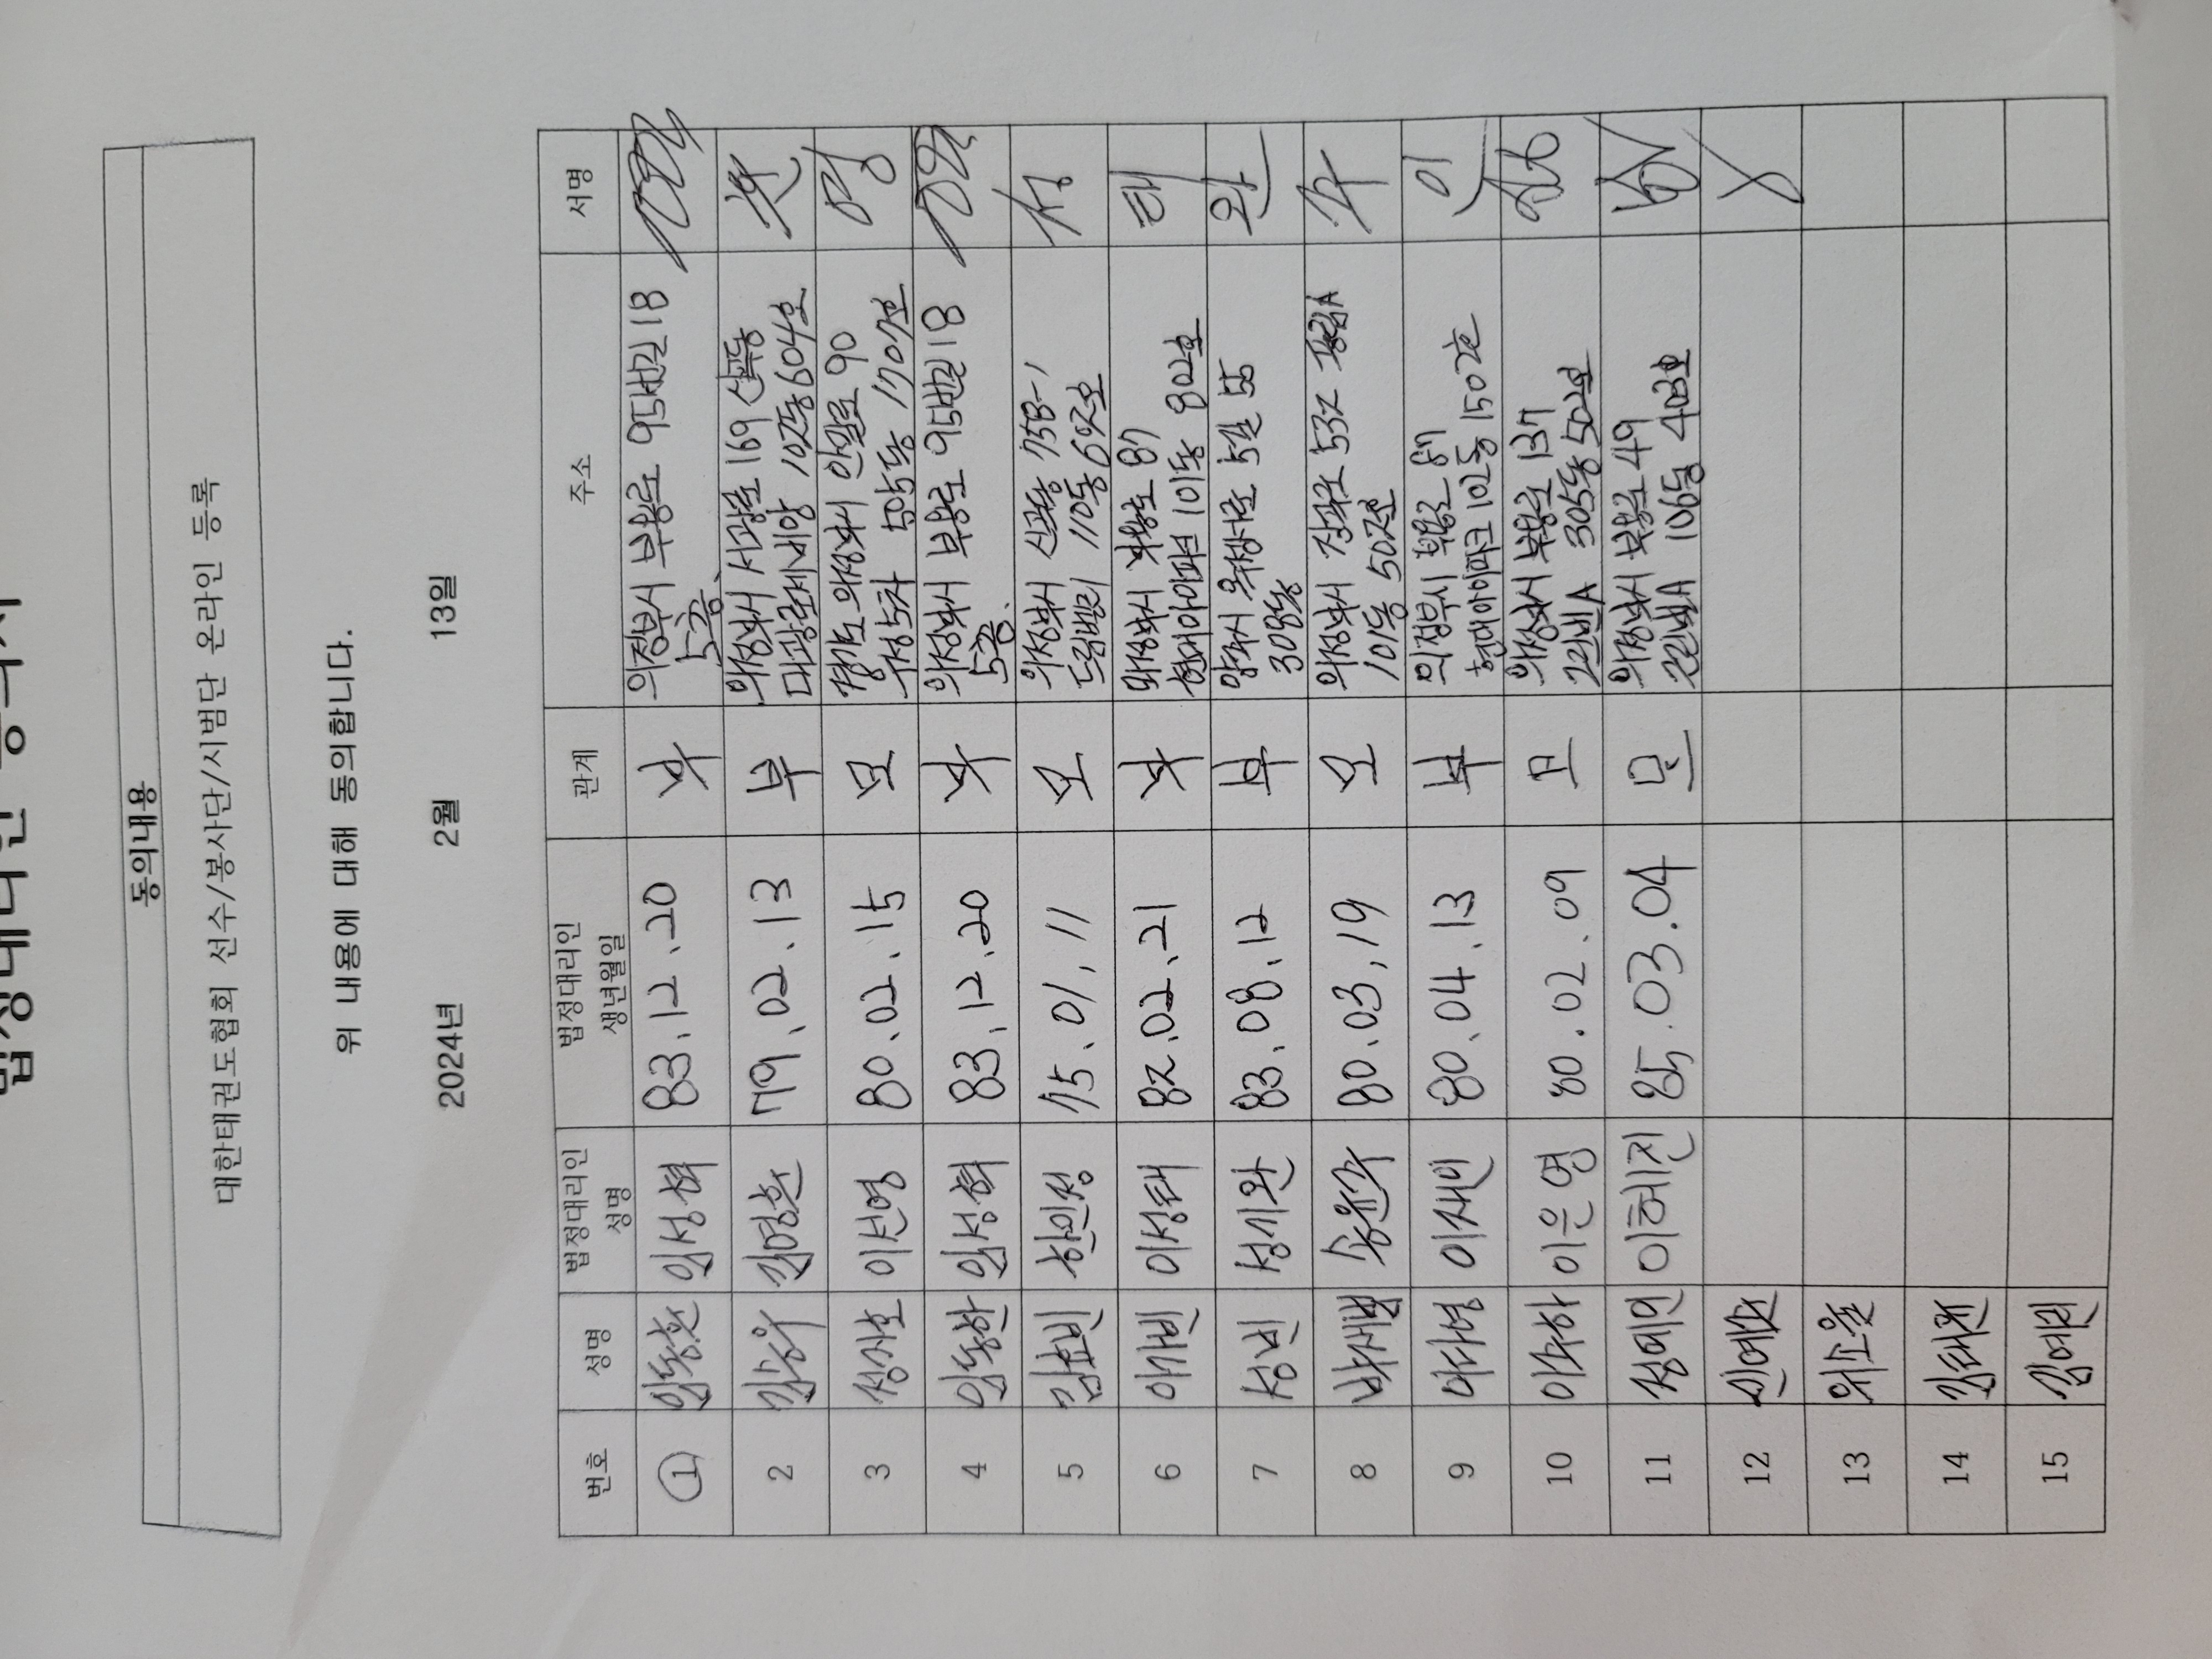 동의내용
대한태권도협회 선수/봉사단/시범단 온라인 등록
위 내용에 대해 동의합니다.
2024년 2월 13일
번호 성명 법정대리인 성명 법정대리인 생년월일 관계 주소 서명
1 임동훈 임성혁 83.12.20 부 의정부시 부용로 95번길 18
5층
2 김명훈 79.02.13 부 의정부시 서광로 169
102동 604호
3 이선영 80.02.15 모 경기도 의정부시 90
505동 1707호 영
4 임동한 임성혁 83.12.20 부 의정부시 부용로 95번길 18
5층
5 김효빈 한인정 75.01.11 모 의정부시 신곡동 758-1
110동 정
6 이가빈 이성태 82.02.21 부 의정부시 부용로 87
현대아이파크 101동 802호 태
7 정빈 정기완 83.08.12 부 양주시 옥정서로 5길 55
309동 완
8 송윤수 80.03.19 모 의정부시 장곡로 532
101동 수
9 이다영 이재인 80.04.13 부 의정부시 부용로 87
현대아이파크 102동 1502호 이
10 이수하 이은영 80.02.09 모 의정부시 부용로 137
305동 502호
11 정예인 이혜진 85.03.04 모 의정부시 부용로 49
106동 403호
12
13 위소율
14
15 김예린